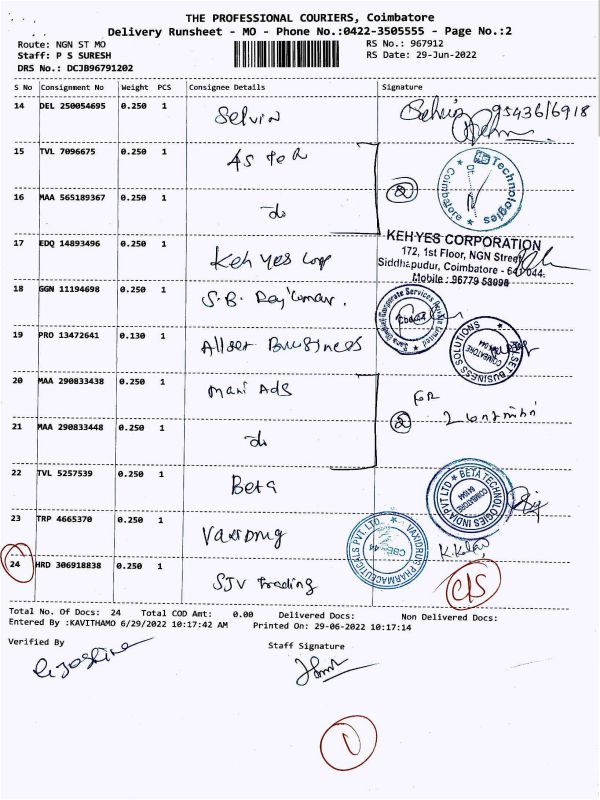 THE PROFESSIONAL COURIERS, Coimbatore
Delivery Runsheet - MO - Phone No.:0422-3505555 - Page No.:2
Route: NGN ST MO
RS No.: 967912
Staff: P S SURESH
RS Date: 29-Jun-2022
DRS No.: DCJB96791202
S No Consignment No Weight PCS Consignee Details Signature
14 DEL 250054695 0.250 1 Selvin
15 TVL 7096675 0.250 1
Technologies
Coimbatore
16 MAA 565189367 0.250 1 do 2
17 EDQ 14893496 0.250 1 Keh yes Corp
KEHYES CORPORATION
172, 1st Floor, NGN Street,
Siddhapudur, Coimbatore - 641 044.
Mobile : 96779 58998
18 GGN 11194698 0.250 1 S.B. Raj Kumar.
19 PRO 13472641 0.130 1 Allset Business
SET BUSINESS SOLUTIONS
COIMBATORE
20 MAA 290833438 0.250 1 Mani Ads
For
21 MAA 290833448 0.250 1 do 2
22 TVL 5257539 0.250 1 Beta
BETA TECHNOLOGIES INDIA PVT LTD
COIMBATORE
23 TRP 4665370 0.250 1 Vaxidrug
VAXIDRUG PHARMACEUTICALS PVT. LTD.
CBE-44
24 HRD 306918838 0.250 1 SJV Trading
Total No. Of Docs: 24 Total COD Amt: 0.00 Delivered Docs: Non Delivered Docs:
Entered By :KAVITHAMO 6/29/2022 10:17:42 AM Printed On: 29-06-2022 10:17:14
Verified By
Staff Signature